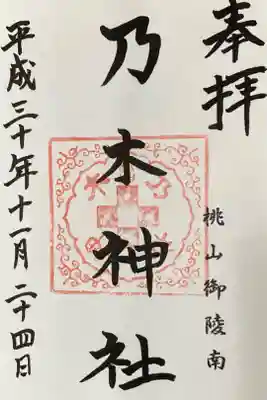 奉拝
桃山御陵南
乃木神社
平成三十年十一月二十四日